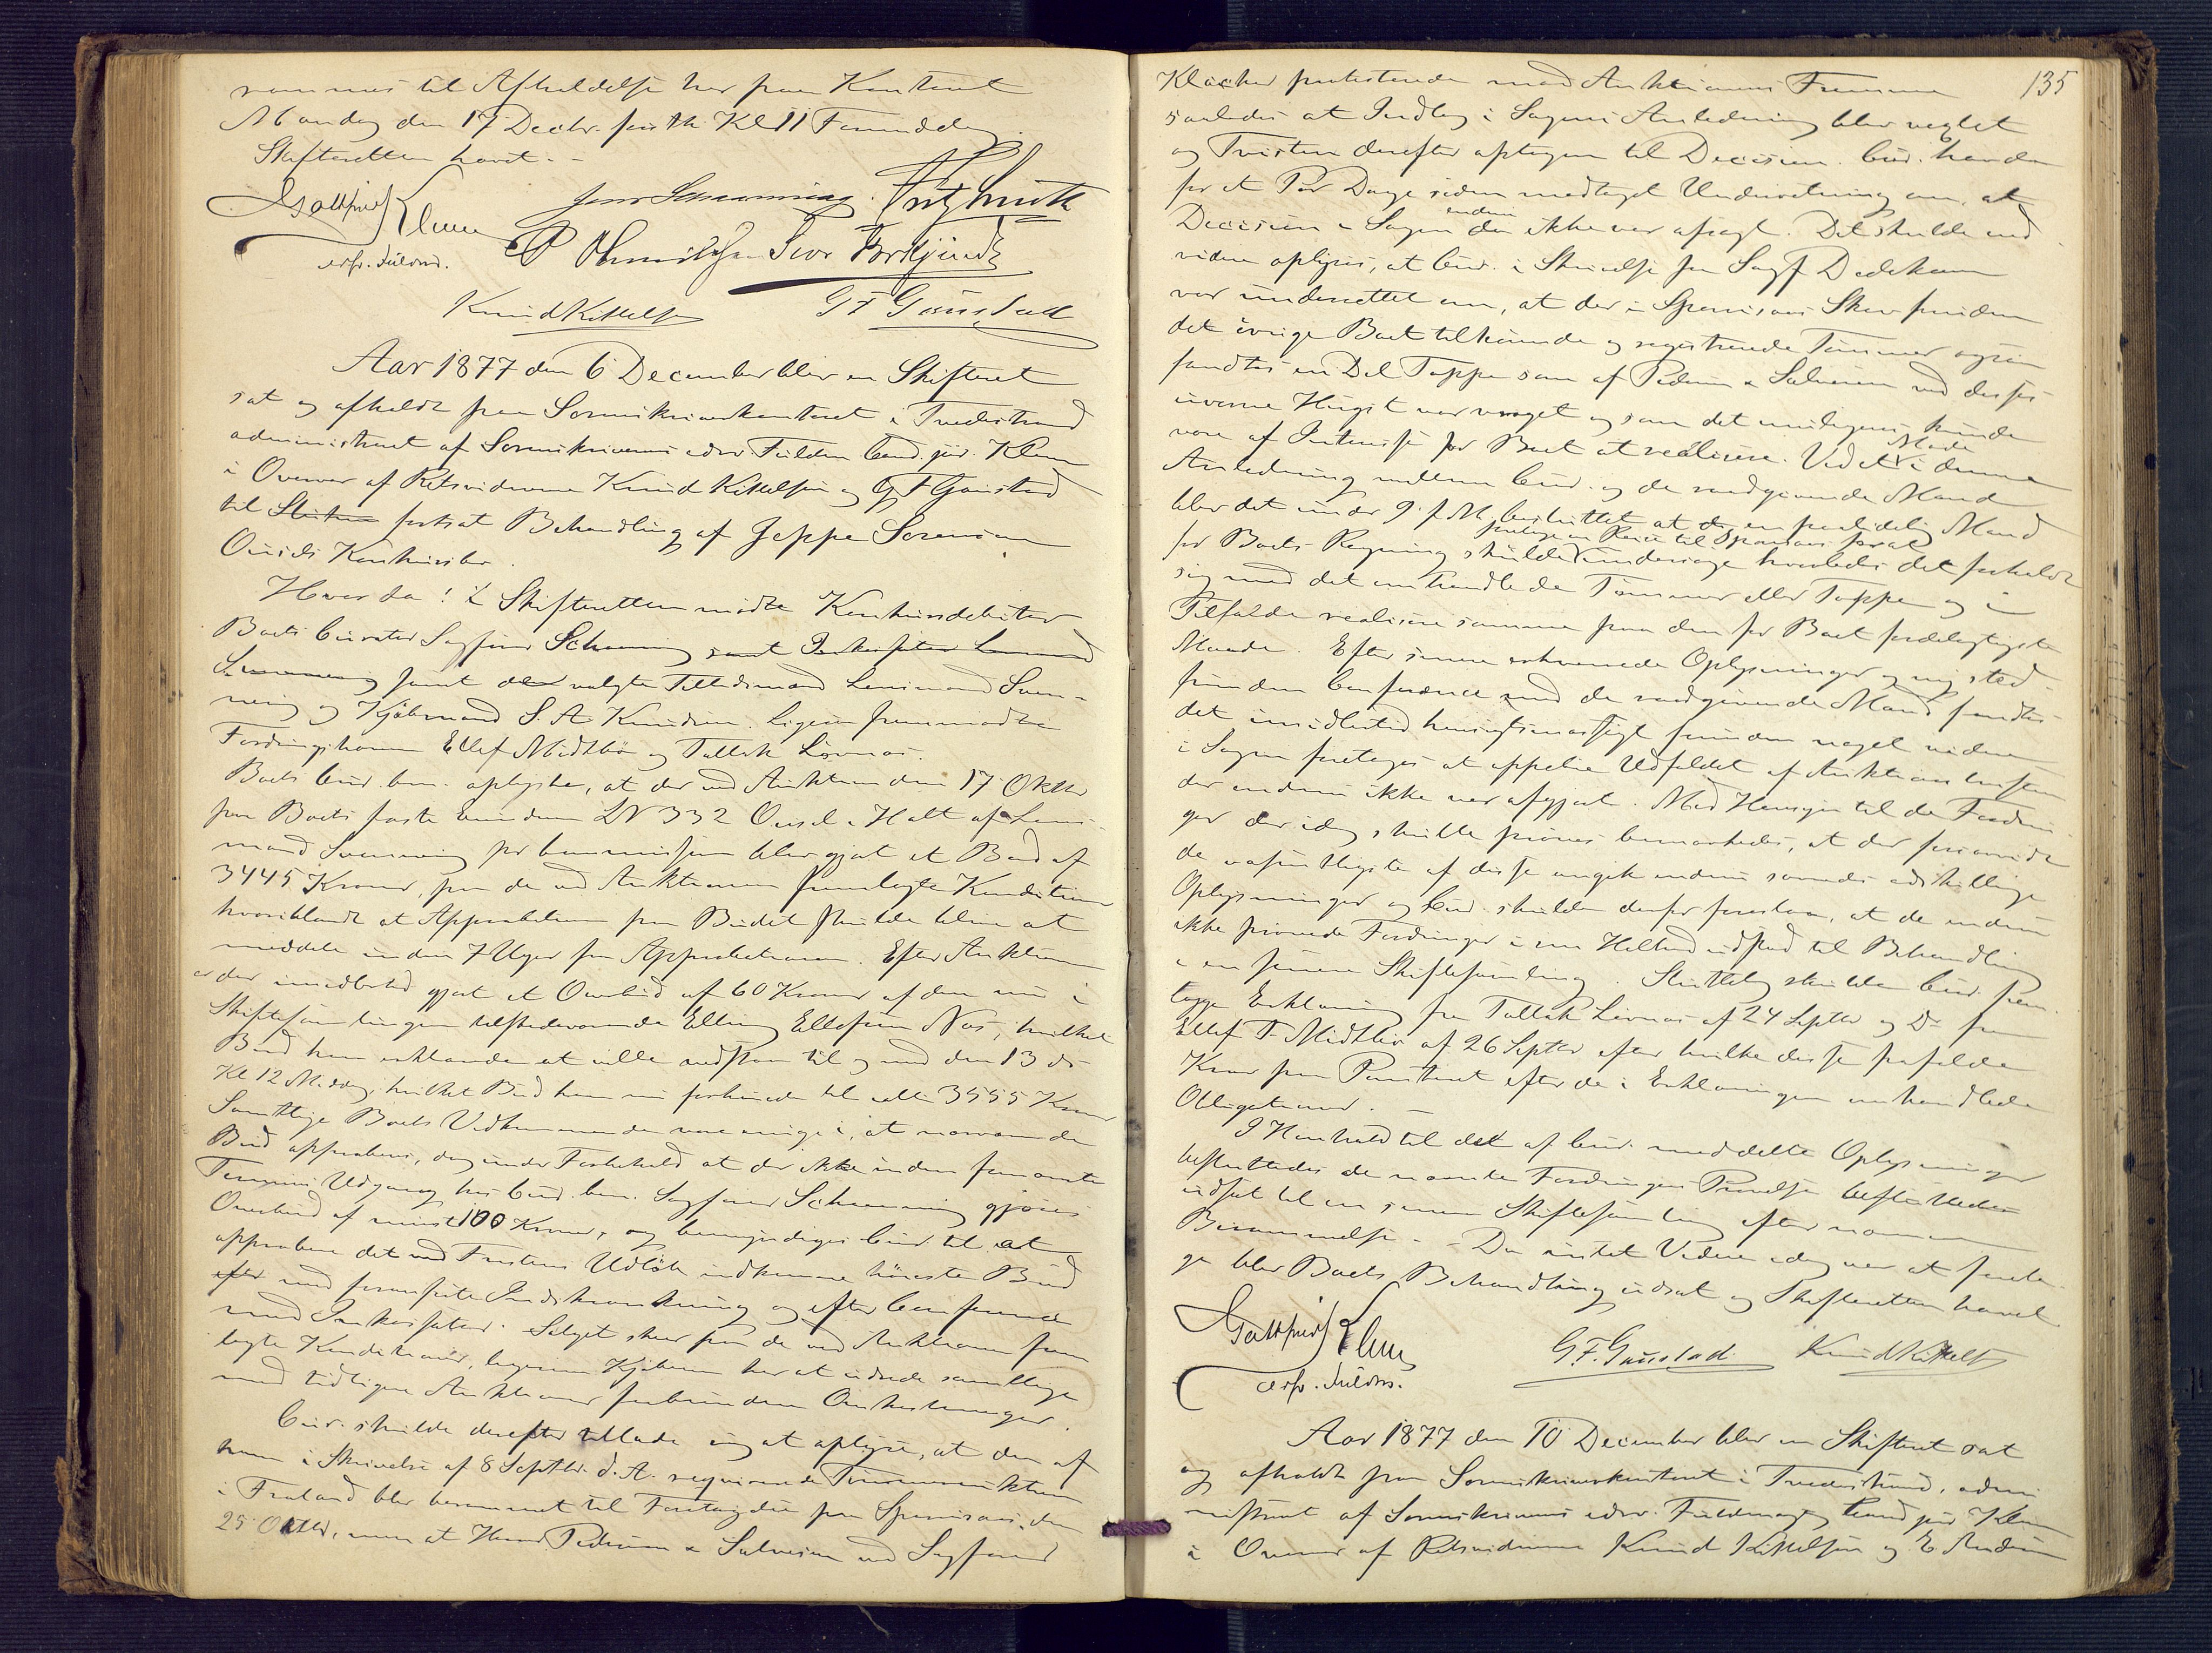 rammes til Afholdelse her paa Kontoret
Mandag den 17 Decbr. førstk Kl 11 Formiddag.
Skifteretten hævet. -
Gottfried Klem Jens Schanning. Fritz Smith
edsv. Fuldm. Sivert
Knud Kittelsen G F Gaustad
Aar 1877 den 6 December blev en Skifteret
sat og afholdt paa Sorenskriverkontoret i Tvedestrand
administreret af Sorenskriverens edsv Fuldm Cand. jur. Klem
i Overvær af Retsvidnerne Knud Kittelsen og G F Gaustad
til fortsat Behandling af Jeppe Sørensen
Ousels Konkursbo.
Hvorda! I Skifteretten mødte Konkursdebitor
Boets Curator Sagfører Schanning samt Lensmand
Svenning samt den valgte Tillidsmand Lensmand Sven-
ning og Kjøbmand S. A Knudsen. Ligesaa fremmødte
Fordringshaverne Ellef Midtbø og Tallak Løvnæs.
Boets Cur. bon. oplyste, at der ved Auktion den 17 Oktbr
paa Boets faste Eiendom LN 332 Ousel i Holt af Lens-
mand Svenning pr Commission blev gjort et Bud af
3445 Kroner, paa de ved Auktionen fremlagte Konditioner
hvoriblandt at Approbation paa Budet skulde blive at
meddele inden 7 Uger fra Approbationen. Efter Auktionen
er der imidlertid gjort et Overbud af 60 Kroner af den nu i
Skiftesamlingen tilstedeværende Elling Ellefsen Næs, hvilket
Bud han erklærede at ville vedstaa til og med den 13 ds
Kl 12 Middag, hvilket Bud han nu forhøiede til 3555 Kroner
Samtlige Boets Vedkommende vare enige i, at nærværende
Bud approberes, dog under Forbehold at der ikke inden fornævnte
Termins Udgang hos Cur. bon. Sagfører Schanning gjøres
Overbud af mindst 100 Kroner, og bemyndiges Cur. til at
approbere det ved Fristens Udløb indkomne høieste Bud
efter med fornøden Indskrænkning og efter Conference
med Inkassator. Salget sker paa de ved Auktionen frem-
lagte Konditioner, ligesom Kjøberen har at udrede samtlige
med tidligere Auktioner forbundne Omkostninger.
Cur. skulde derefter tillade sig at oplyse, at den af
ham i Skrivelse af 8 Septbr. d. A. requirerede Tømmerauktion
i Froland blev berammet til Foretagelse paa Sponsaas den
25 Oktbr, men at Herrer Pedersen & Salvesen ved Sagfører
135
Klöcker protesterede mod Auktionens Fremme
saaledes at Indlæg i Sagens Anledning blev vexlet
og Tvisten derefter optagen til Decision. Cur. havde
for et Par Dage siden modtaget Underretning om, at
Decision i Sagen endnu da ikke var afsagt. Det skulde end-
videre oplyses, at Cur. i Skrivelse fra Sagf Dedekam
var underrettet om, at der i Sponsaas Skov foruden
det øvrige Boet tilkommende og registrerede Tømmer ogsaa
fandtes en Del Toppe som af Pedersen & Salvesen ved deres
Hugst var vraget og som det muligens kunde
være af Interesse for Boet at realisere. Ved et Møde i denne
Anledning mellem Cur. og de raadgivende Mænd
blev det under 9 f M. besluttet at en paalidelig Mand
for Boets Regning skulde foretage en Reise til Sponsaas for at undersøge hvorledes det forholdt
sig med det omhandlede Tømmer eller Toppe og i
Tilfælde realisere samme paa den for Boet fordelagtigste
Maade. Efter senere erhvervede Oplysninger og ny sted-
funden Conference med de raadgivende Mænd fandtes
det imidlertid hensigtsmæssigt forinden noget videre
i Sagen foretages at oppebie Udfaldet af Auktionstvisten
der endnu ikke var afgjort. Med Hensyn til de Fordrin-
ger der idag skulde prøves bemærkedes, at der forsaavidt
de væsentligste af disse angik endnu savnedes adskillige
Oplysninger og Cur. skulde derfor foreslaa, at de endnu
ikke prøvede Fordringer i sin Helhed udstod til Behandling
i en senere Skiftesamling. Sluttelig skulde Cur. frem-
lægge Erklæring fra Tallak Løvnæs af 24 Septbr og Do fra
Ellef T. Midtbø af 26 Septbr efter hvilke disse frafalde
Krav paa Panteret efter de i Erklæringen omhandlede
Obligationer. -
I Henhold til det af Cur. meddelte Oplysninger
besluttedes de nævnte Fordringers Prøvelse
udsat til en senere Skiftesamling efter nærmere
Berammelse. - Da intet Videre idag var at foreta-
ge blev Boets Behandling udsat og Skifteretten hævet.
Gottfried Klem G. F. Gaustad Knud Kittelsen
edsv. Fuldm.
Aar 1877 den 10 December blev en Skifteret sat
og afholdt paa Sorenskriverkontoret i Tvedestrand, admi-
nistreret af Sorenskriverens edsv. Fuldmægtig Cand jur Klem
i Overvær af Retsvidnerne Knud Kittelsen og